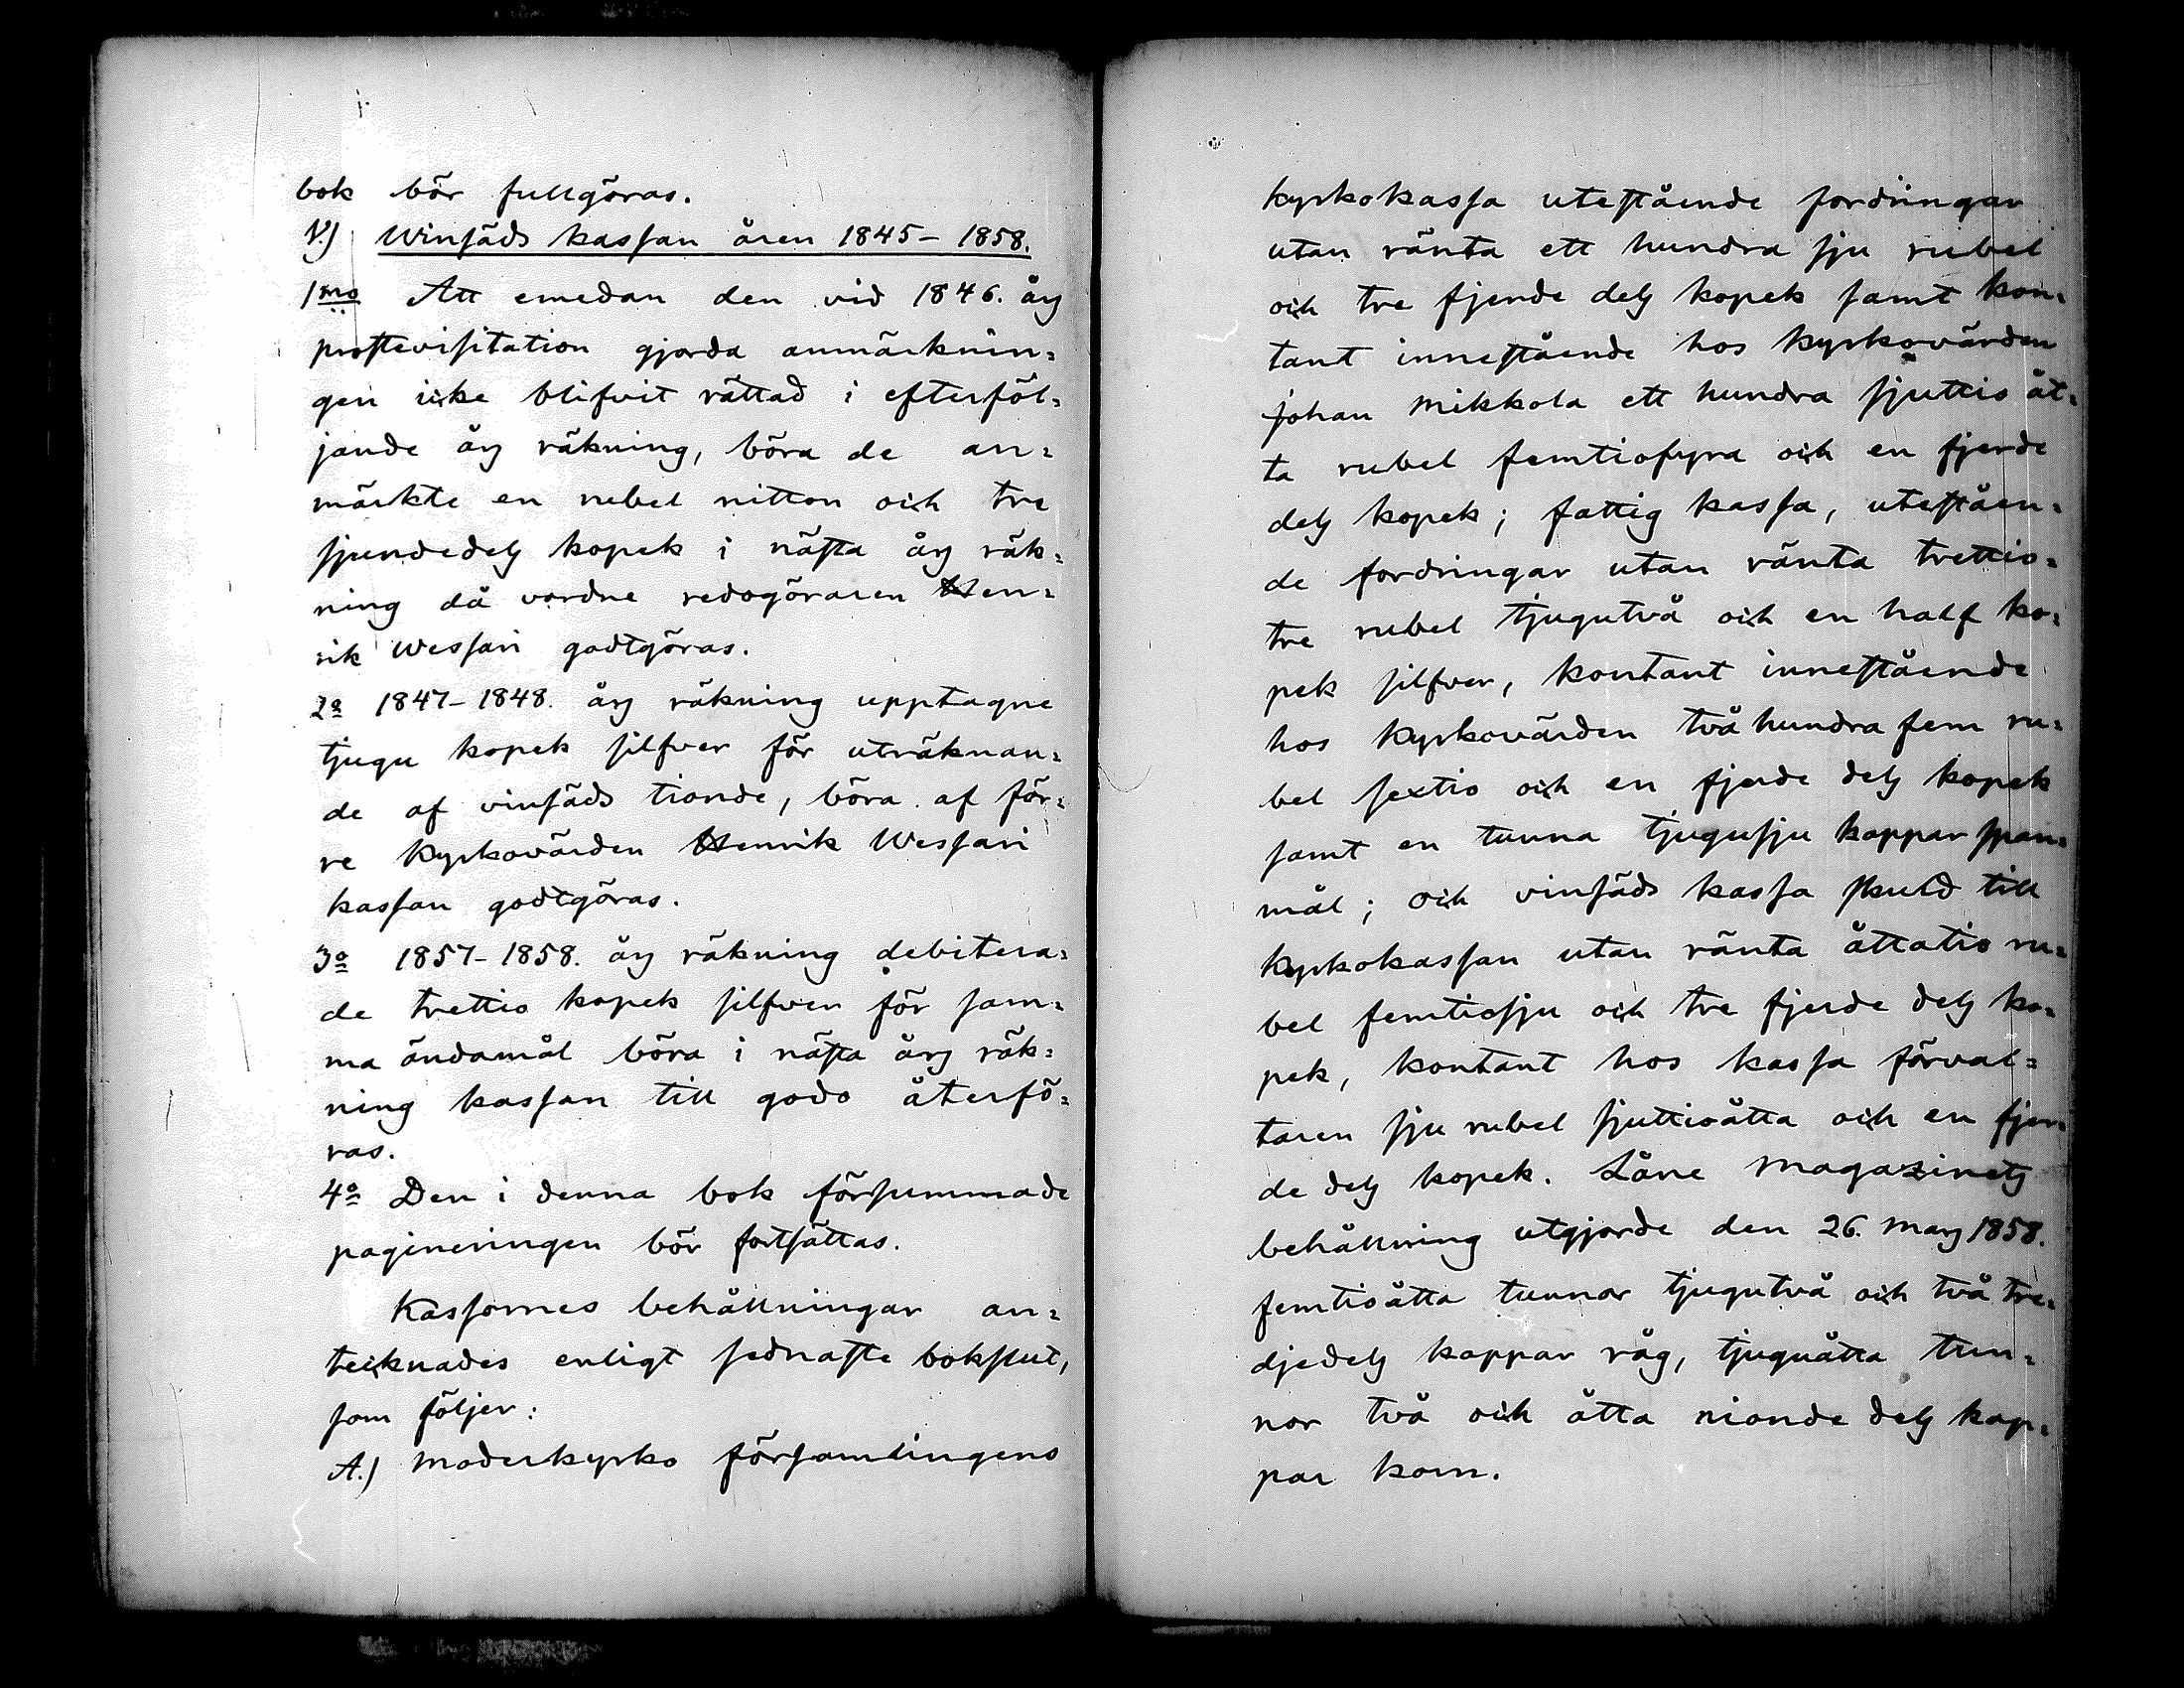 bok bör fullgöras.
V.) Winsäds kassan åren 1845-1858.
1mo Att emedan den vid 1846. års
prostevisitation gjorda anmärknin=
gen icke blifvit rättad i efterföl=
jande års räkning, böra de an=
märkte en rubel nitton och tre
sjundedels kopek i nästa års räk=
ning då vordne redogöraren Hen=
rik Wessari godtgöras.
2o 1847-1848. års räkning upptagne
tjugu kopek silfver för uträknan=
de af vinsäds tionde, böra af för=
re Kyrkovärden Henrik Wessari
kassan godtgöras.
3o 1857-1858. års räkning debitera=
de trettio kopek silfver för sam=
ma ändamål böra i nästa års räk=
ning kassan till godo återfö=
ras.
4o Den i denna bok försummade
pagineringen bör fortsättas.
Kassornes behållningar an=
tecknades enligt sednaste bokslut,
som följer:
A.) Moderkyrko församlingens
kyrkokassa utestående fordringar
utan ränta ett hundra sju rubel
och tre fjerde dels kopek samt kon=
tant innestående hos Kyrkovärden
Johan Mikkola ett hundra sjuttio åt=
ta rubel femtiofyra och en fjerde
dels kopek; fattig kassa, uteståen=
de fordringar utan ränta trettio=
tre rubel tjugutvå och en half ko=
pek silfver, kontant innestående
hos Kyrkovärden två hundra fem ru=
bel sextio och en fjerde dels kopek
samt en tunna tjugusju kappar span=
mål; och vinsäds kassa skuld till
Kyrkokassan utan ränta åttatio ru=
bel femtiosju och tre fjerde dels ko=
pek, kontant hos kassa förval=
taren sju rubel sjuttioåtta och en fjer=
de dels kopek. Låne magasinets
behållning utgjorde den 26. Mars 1858.
femtioåtta tunnor tjugutvå och två tre=
djedels kappar råg, tjuguåtta tun=
nor två och åtta nionde dels kap=
par korn.